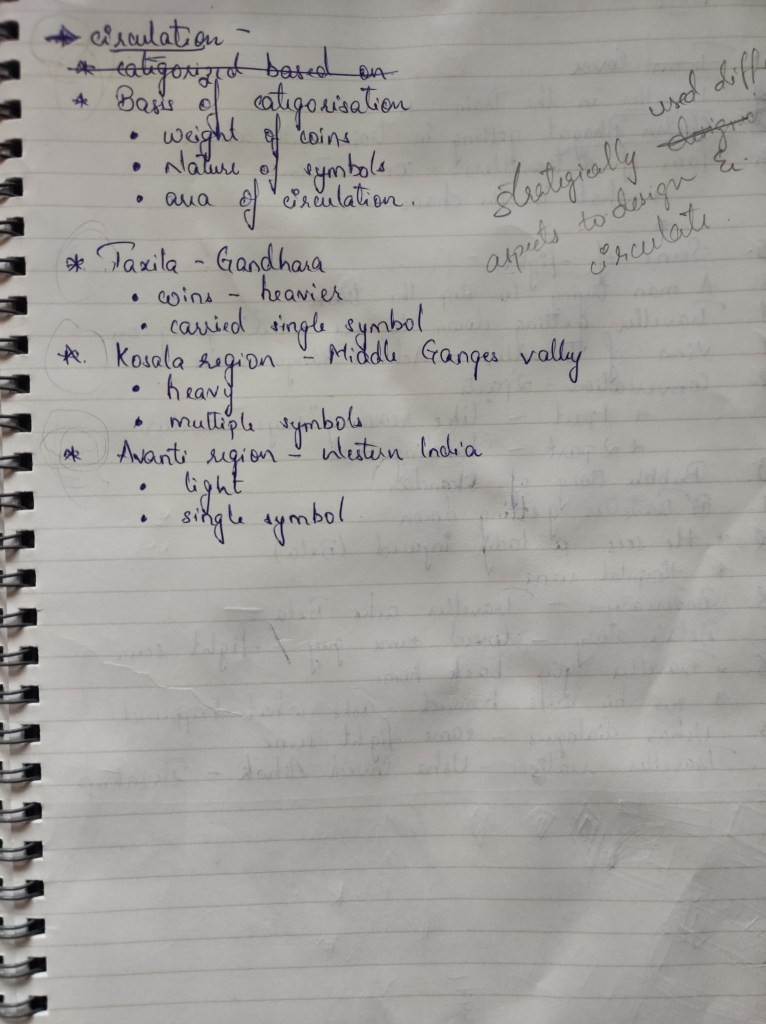 → circulation -
* categorized based on
* Basis of categorisation
• weight of coins
• Nature of symbols
• area of circulation.
used diff
strategically design
aspects to design &
circulate.
* Taxila - Gandhara
• coins - heavier
• carried single symbol
*. Kosala region - Middle Ganges vally
• heavy
• multiple symbols
* Avanti region - Western India
• light
• single symbol